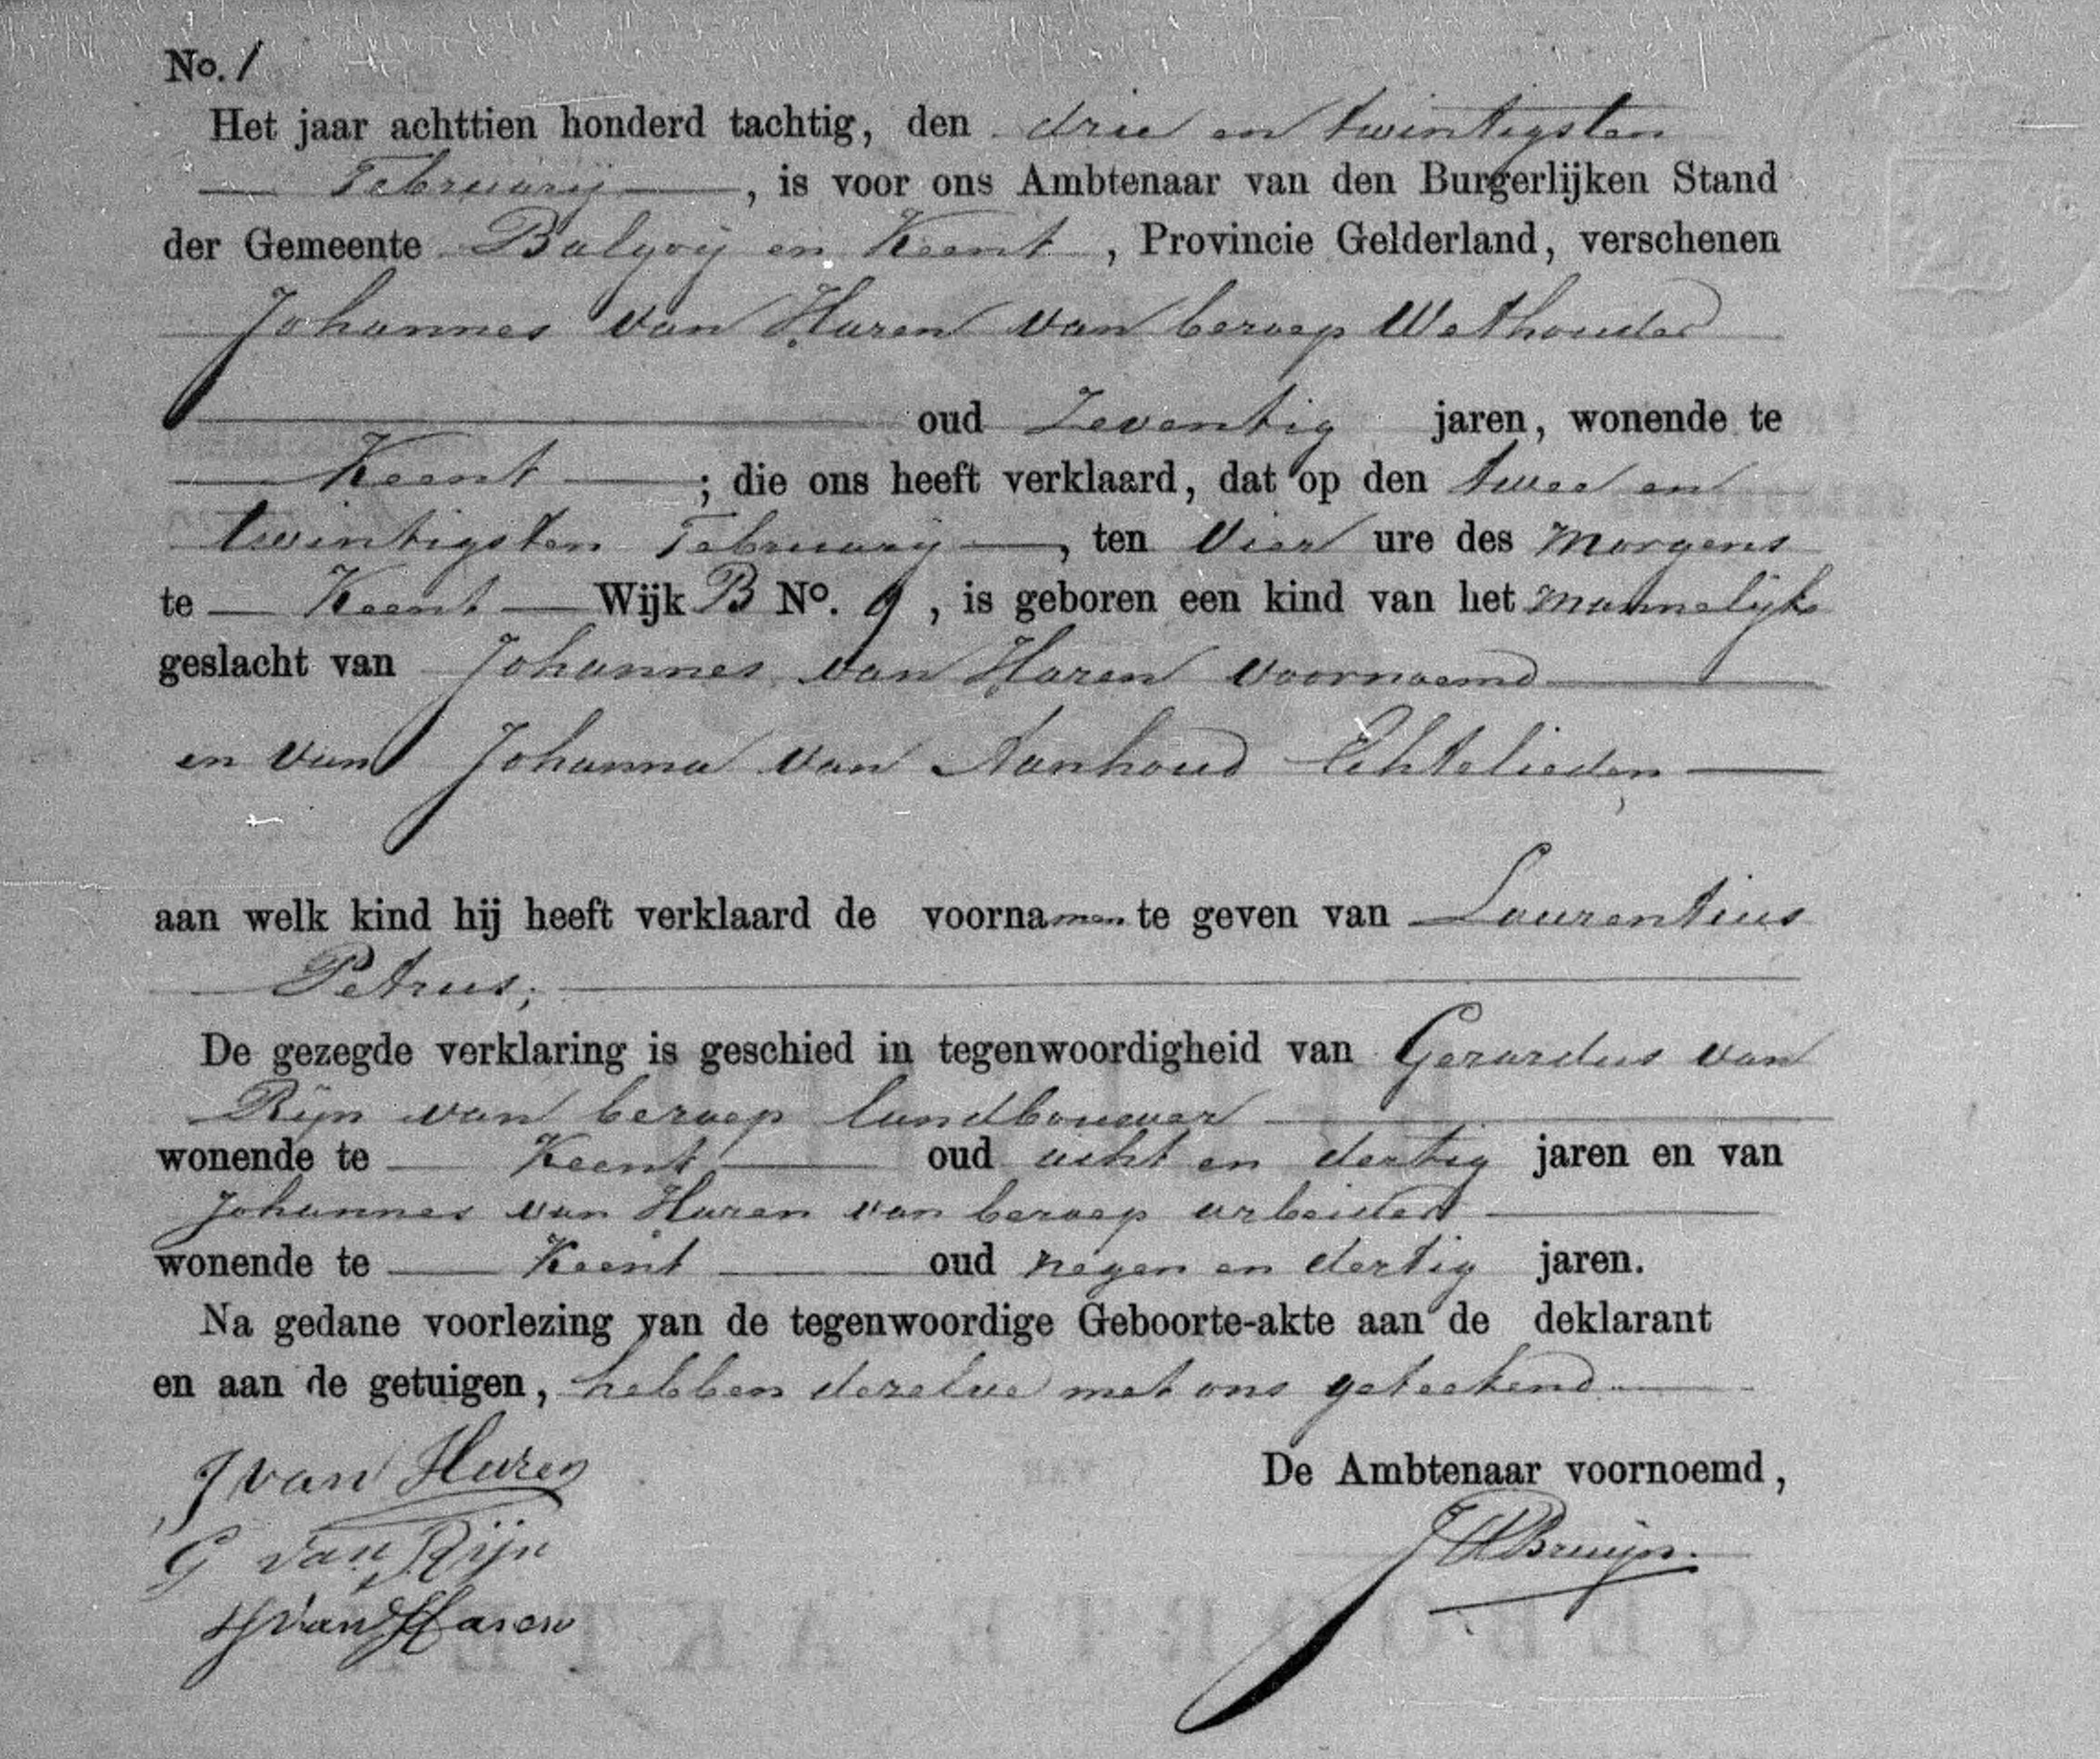 No. 1
Het jaar achttien honderd tachtig, den drie en twintigsten
Februarij, is voor ons Ambtenaar van den Burgerlijken Stand
der Gemeente Balgoij en Keent, Provincie Gelderland, verschenen
Johannes van Haren van beroep Wethouder
oud Zeventig jaren, wonende te
Keent; die ons heeft verklaard, dat op den twee en
twintigsten Februarij, ten Vier ure des morgens
te Keent Wijk B No. 9, is geboren een kind van het mannelijk
geslacht van Johannes van Haren voornoemd
en van Johanna van Aanhoud Echtelieden
aan welk kind hij heeft verklaard de voornamen te geven van Laurentius
Petrus;
De gezegde verklaring is geschied in tegenwoordigheid van Gerardus van
Rijn van beroep landbouwer
wonende te Keent oud acht en dertig jaren en van
Johannes van Haren van beroep arbeider
wonende te Keent oud negen en dertig jaren.
Na gedane voorlezing van de tegenwoordige Geboorte-akte aan de deklarant
en aan de getuigen, hebben dezelve met ons geteekend
J van Haren
De Ambtenaar voornoemd,
G van Rijn
Bruijn.
van Haren
GEBOORTE AKTE